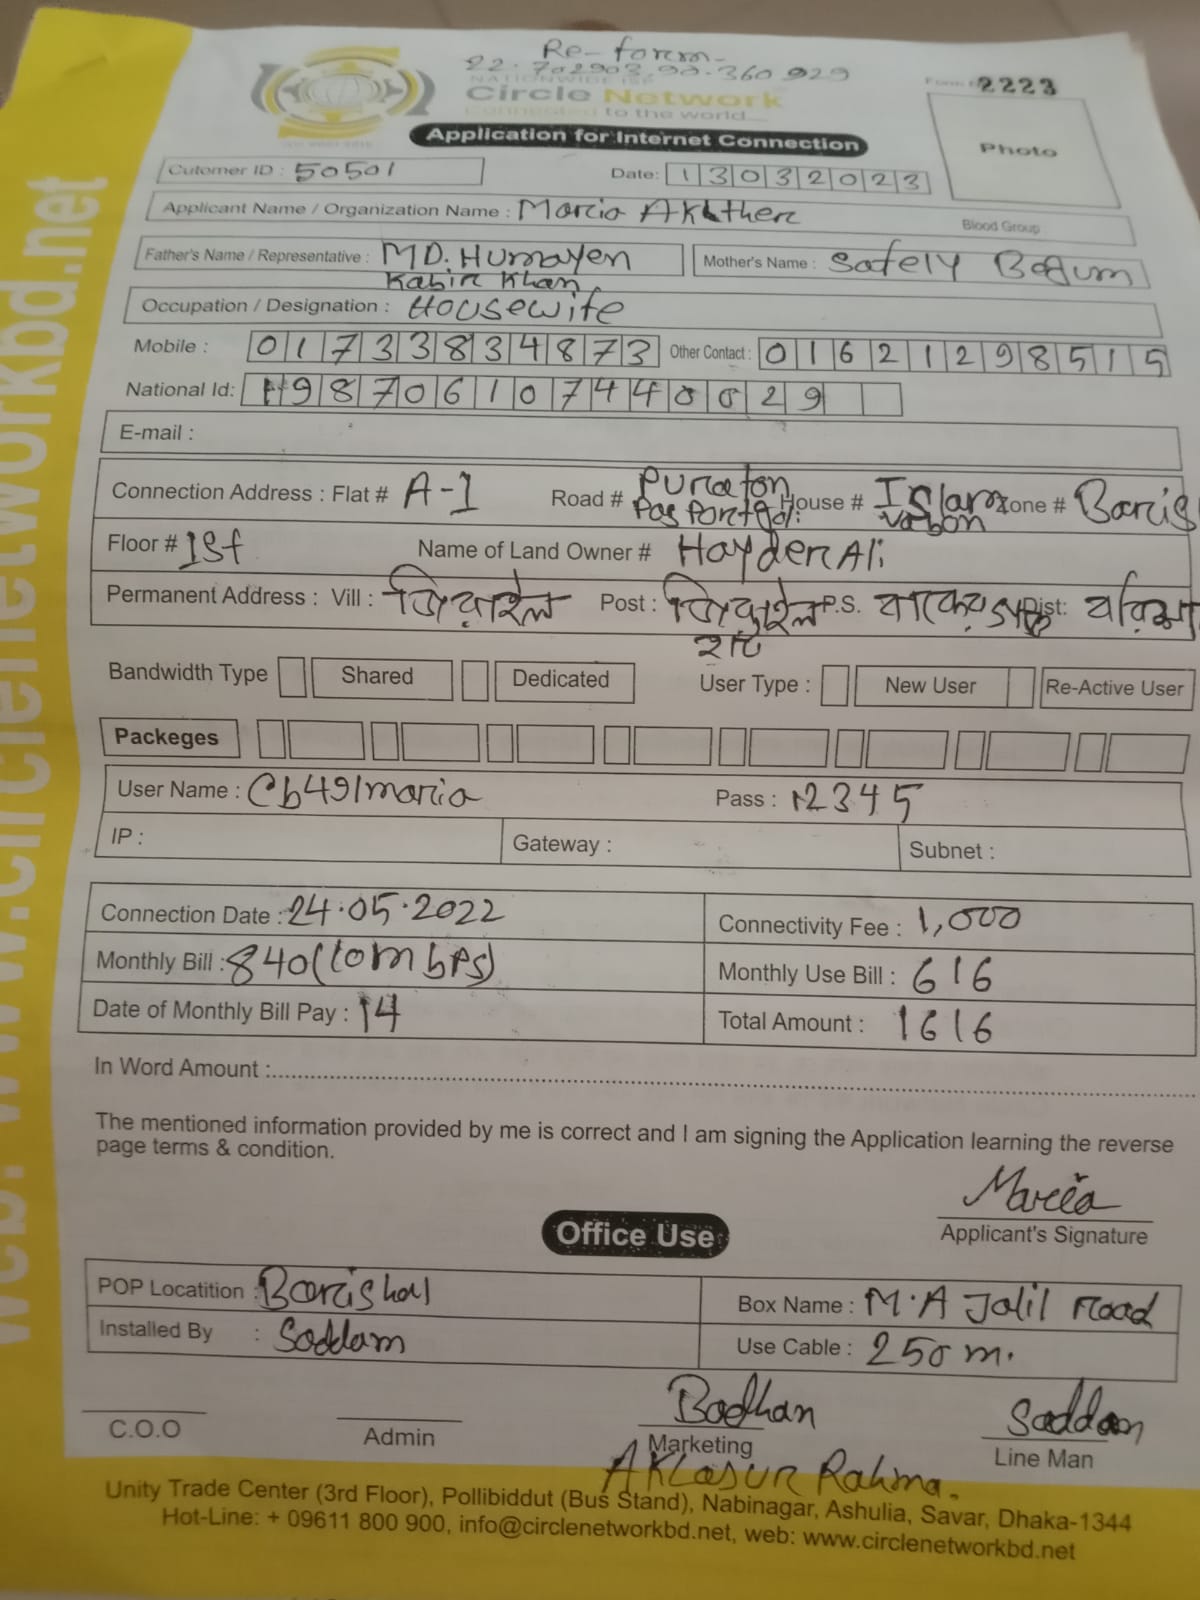 Re-form-
22.702903, 90.360929
NATIONWIDE ISP
Circle Network
Connected to the world....
Form # 2223
Application for Internet Connection
Photo
Cutomer ID : 50501
Date: 13032023
Applicant Name / Organization Name : Maria Akther
Blood Group
Father's Name / Representative : MD. Humayen Kabir Khan
Mother's Name : Safely Begum
Occupation / Designation : Housewife
Mobile : 01733834873 Other Contact : 01621298515
National Id: 19870610744000029
E-mail :
Connection Address : Flat # A-1 Road # Puraton House # Islam Vabon Zone # Baris
Floor # 1st Name of Land Owner # Hayder Ali
Permanent Address : Vill : Post : P.S. Dist:
Bandwidth Type Shared Dedicated User Type : New User Re-Active User
Packeges
User Name : Cb491maria Pass : 12345
IP : Gateway : Subnet :
Connection Date : 24.05.2022 Connectivity Fee : 1,000
Monthly Bill : 840 (10mbps) Monthly Use Bill : 616
Date of Monthly Bill Pay : 14 Total Amount : 1616
In Word Amount :
The mentioned information provided by me is correct and I am signing the Application learning the reverse
page terms & condition.
Maria
Applicant's Signature
Office Use
POP Locatition : Barishal Box Name : M.A Jalil Road
Installed By : Saddam Use Cable : 250 m.
Badhan Saddam
C.O.O Admin Marketing Line Man
Aklasur Rahma.
Unity Trade Center (3rd Floor), Pollibiddut (Bus Stand), Nabinagar, Ashulia, Savar, Dhaka-1344
Hot-Line: + 09611 800 900, info@circlenetworkbd.net, web: www.circlenetworkbd.net
web: www.circlenetworkbd.net